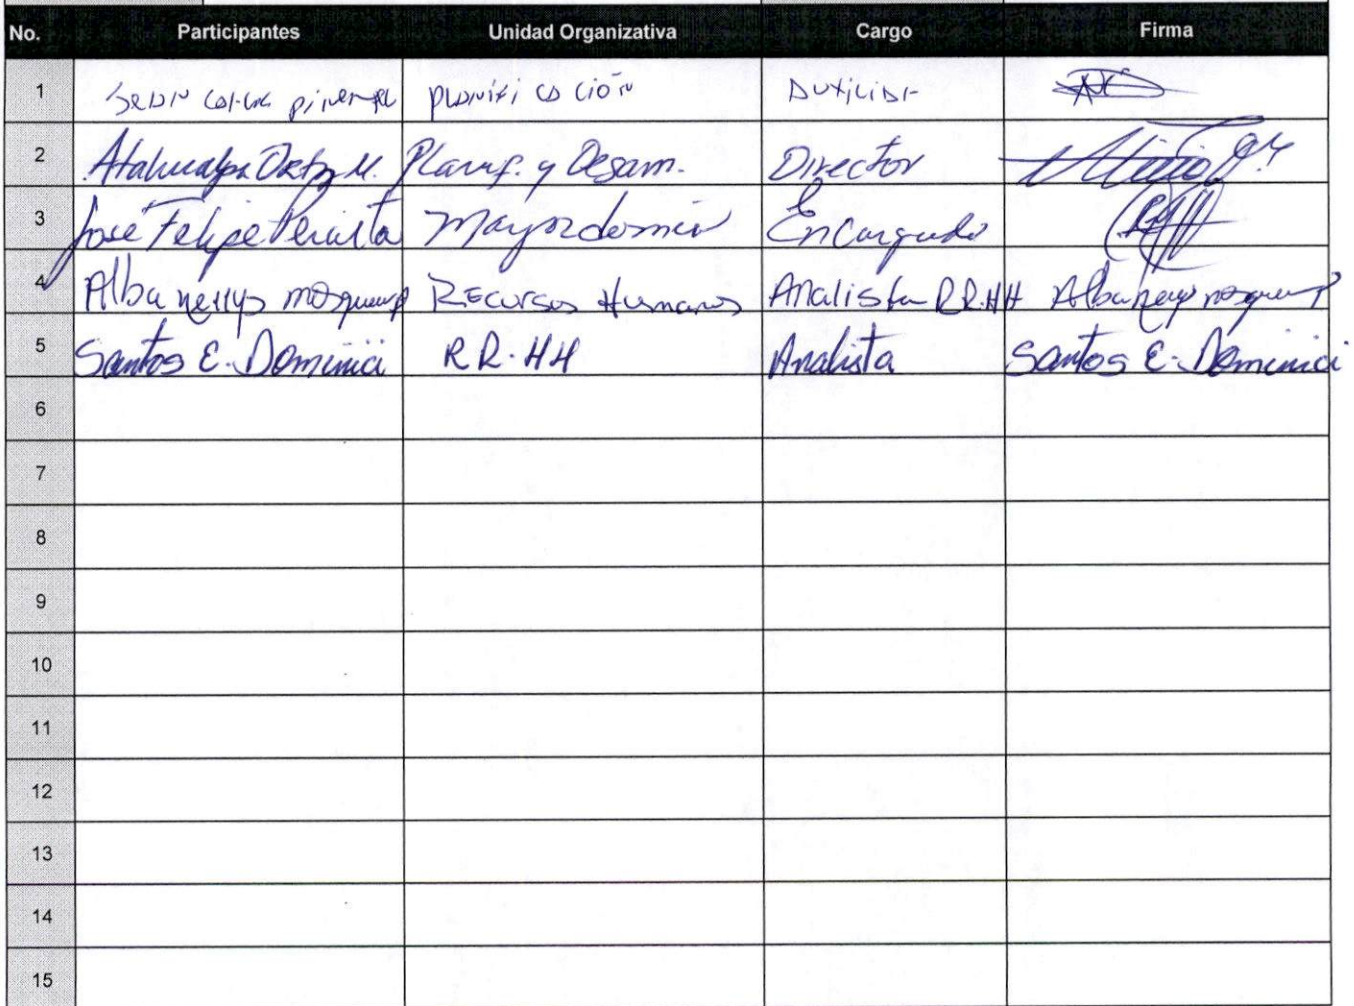 No. Participantes Unidad Organizativa Cargo Firma
1 planificación Auxiliar
2 Atahualpa Ortiz M. Planif. y Desarr. Director
3 José Felipe Peralta Mayordomía Encargado
4 Alba nellys mosquea Recursos Humanos Analista RR.HH Alba nellys mosquea
5 Santos E. Dominici RR.HH Analista Santos E. Dominici
6
7
8
9
10
11
12
13
14
15